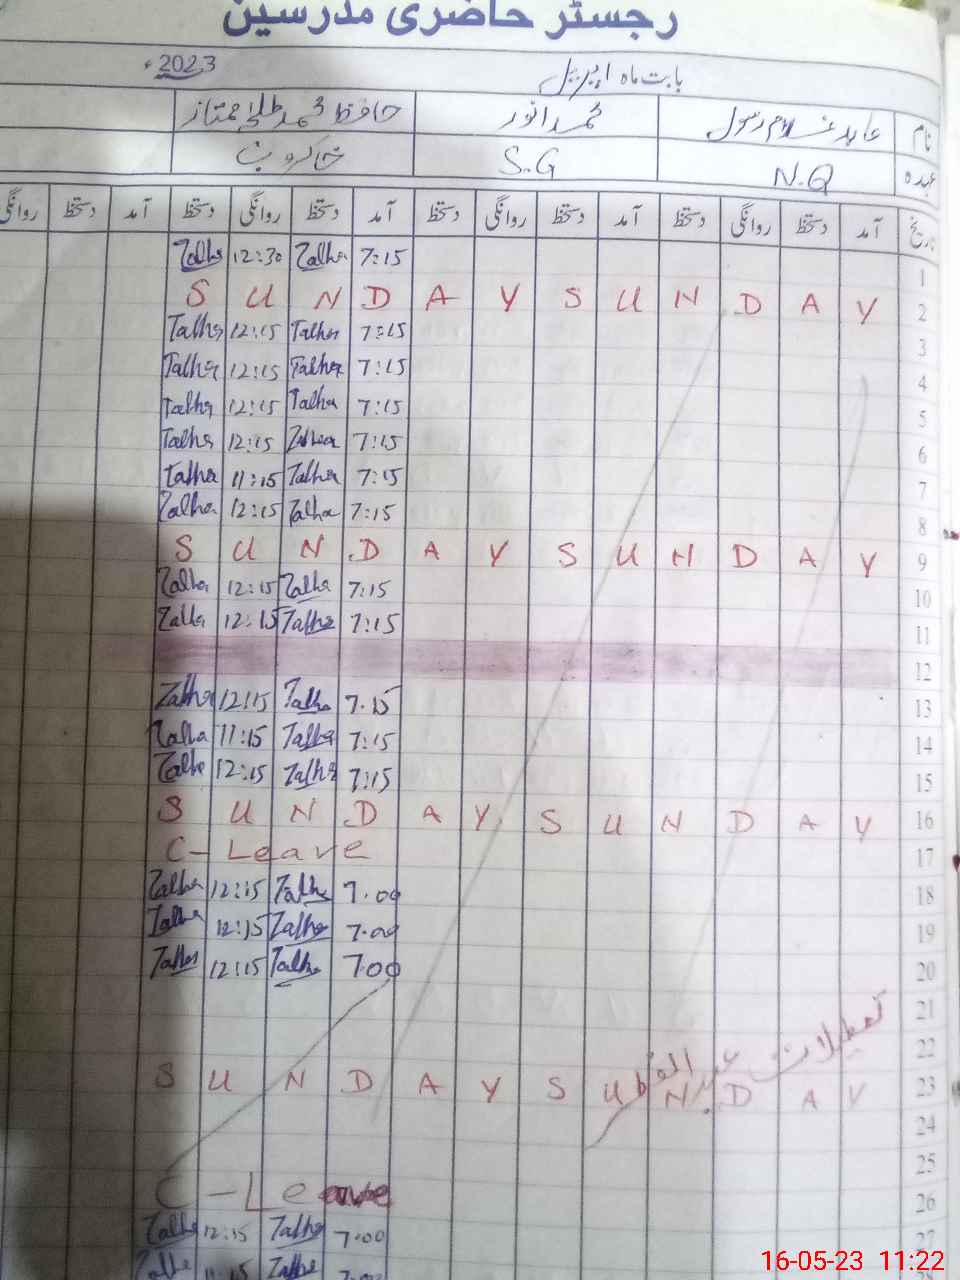 رجسٹر حاضری مدرسین
بابت ماہ اپریل 2023ء
نام عابد غلام رسول محمد انور حافظ محمد طلحٰہ ممتاز
عہدہ N.Q S.G خاکروب
تاریخ آمد دستخط روانگی دستخط آمد دستخط روانگی دستخط آمد دستخط روانگی دستخط آمد دستخط روانگی
1 7:15 Talha 12:30 Talha
2 S U N D A Y S U N D A Y
3 7:15 Talha 12:15 Talha
4 7:15 Talha 12:15 Talha
5 7:15 Talha 12:15 Talha
6 7:15 Talha 12:15 Talha
7 7:15 Talha 11:15 Talha
8 7:15 Talha 12:15 Talha
9 S U N D A Y S U N D A Y
10 7:15 Talha 12:15 Talha
11 7:15 Talha 12:15 Talha
12
13 7.15 Talha 12:15 Talha
14 7:15 Talha 11:15 Talha
15 7:15 Talha 12:15 Talha
16 S U N D A Y S U N D A Y
17 C-Leave
18 7.00 Talha 12:15 Talha
19 7.00 Talha 12:15 Talha
20 7.00 Talha 12:15 Talha
21
22 تعطیلات عید الفطر
23 S U N D A Y S U N D A Y
24
25
26 C-Leave
27 7.00 Talha 12:15 Talha
16-05-23 11:22